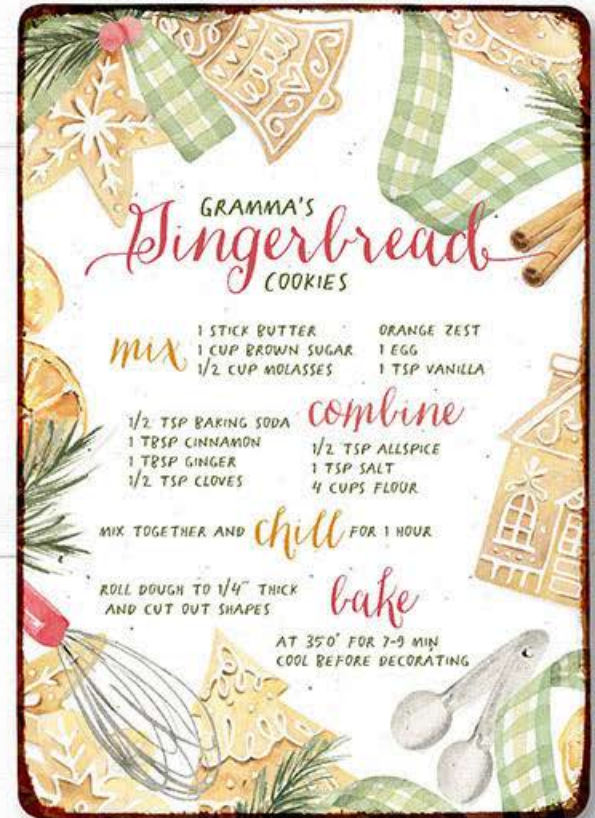 GRAMMA'S
Gingerbread
COOKIES
mix
1 STICK BUTTER
1 CUP BROWN SUGAR
1/2 CUP MOLASSES
ORANGE ZEST
1 EGG
1 TSP VANILLA
combine
1/2 TSP BAKING SODA
1 TBSP CINNAMON
1 TBSP GINGER
1/2 TSP CLOVES
1/2 TSP ALLSPICE
1 TSP SALT
4 CUPS FLOUR
MIX TOGETHER AND chill FOR 1 HOUR
ROLL DOUGH TO 1/4" THICK
AND CUT OUT SHAPES
bake
AT 350° FOR 7-9 MIN
COOL BEFORE DECORATING